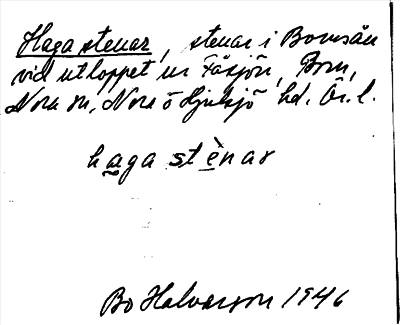 Haga stenar, stenar i Bornsån
vid utloppet ur Fåsjön, Born,
Nora sn, Nora o Hjulsjö hd. Ör. l.
haga stènar
Bo Halvarson 1946